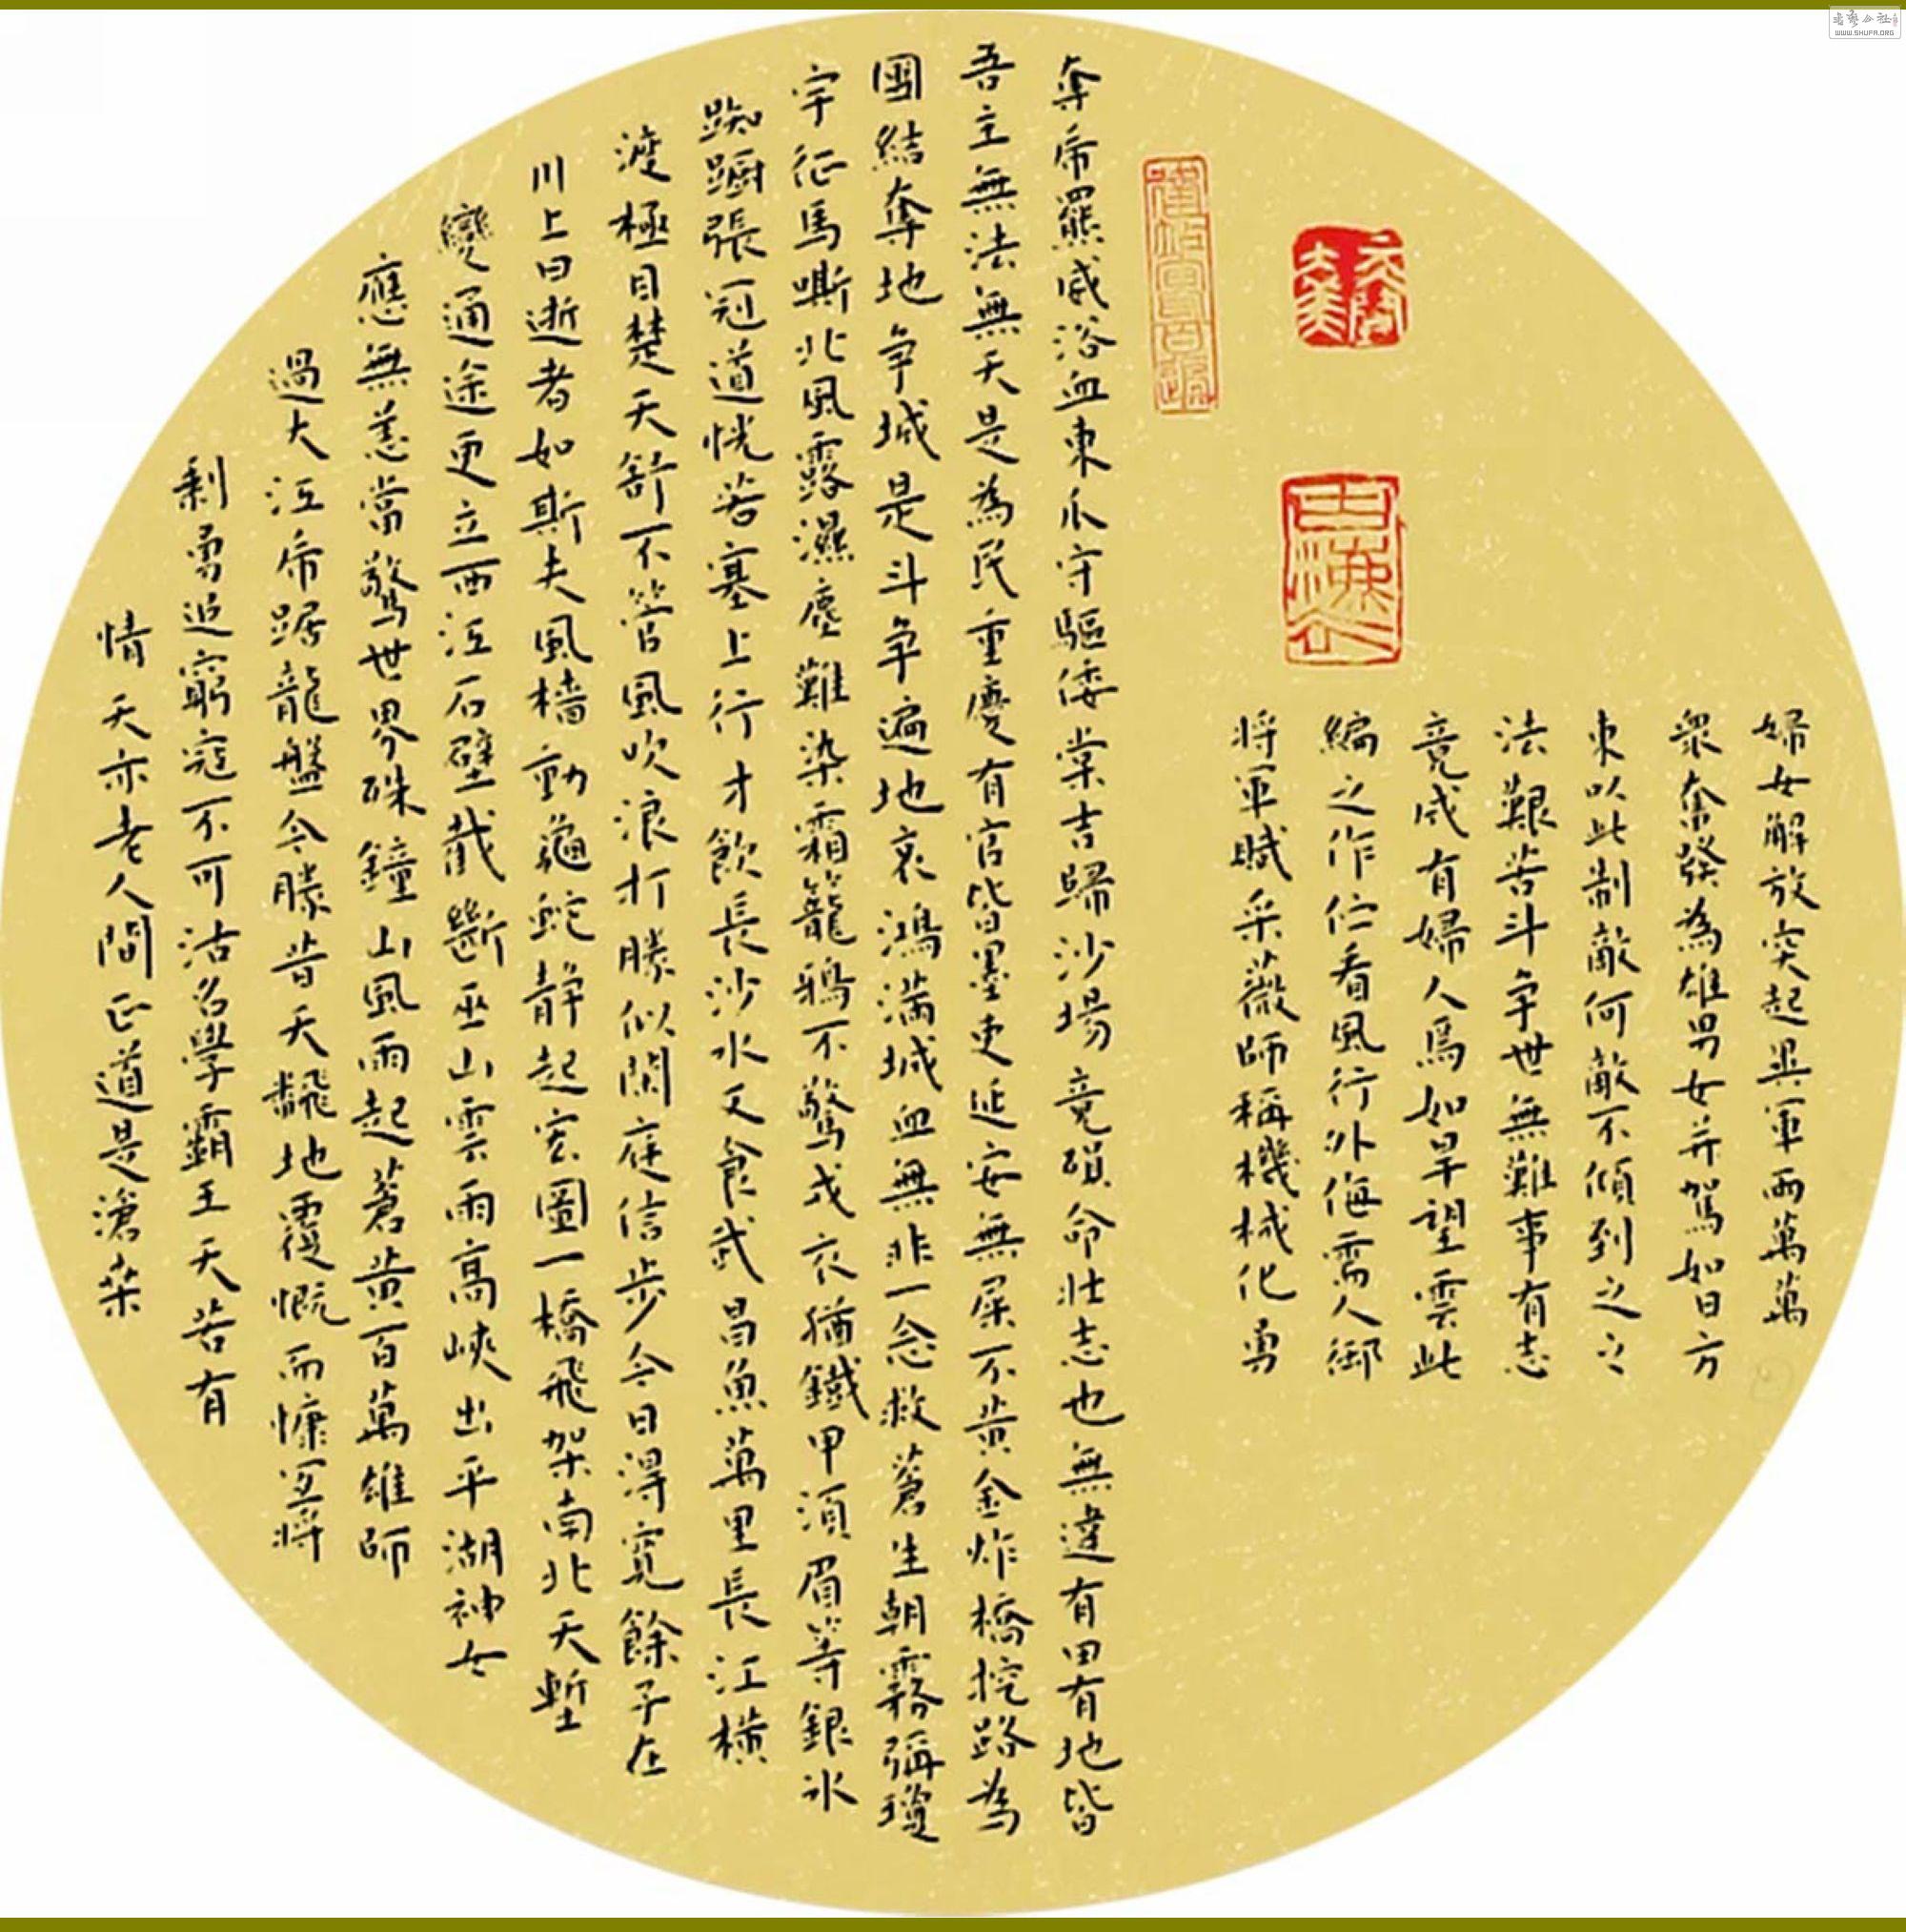 婦女解放突起異軍兩萬萬
衆奮發為雄男女并駕如日方
東以此制敵何敵不傾到之之
法艱苦斗爭世無難事有志
竟成有婦人焉如旱望雲此
編之作伫看風行外侮需人御
將軍賦采薇師稱機械化勇
奪帝羆威浴血東爪守驅倭棠吉歸沙場竟殞命壯志也無違有田有地皆
吾主無法無天是為民重慶有官皆墨吏延安無屎不黃金炸橋挖路為
團結奪地争城是斗争遍地哀鴻滿城血無非一念救蒼生朝霧彌瓊
宇征馬嘶北風露濕塵難染霜籠鴉不驚戎衣猶鐵甲須眉等銀冰
踟躕張冠道恍若塞上行才飲長沙水又食武昌魚萬里長江橫
渡極目楚天舒不管風吹浪打勝似閑庭信步今日得寬餘子在
川上曰逝者如斯夫風檣動龜蛇静起宏圖一橋飛架南北天塹
變通途更立西江石壁截斷巫山雲雨高峽出平湖神女
應無恙當驚世界殊鐘山風雨起蒼黃百萬雄師
過大江帝踞龍盤今勝昔天翻地覆慨而慷宜將
剩勇追窮寇不可沽名學霸王天若有
情天亦老人間正道是滄桑
WWW.SHUFA.ORG